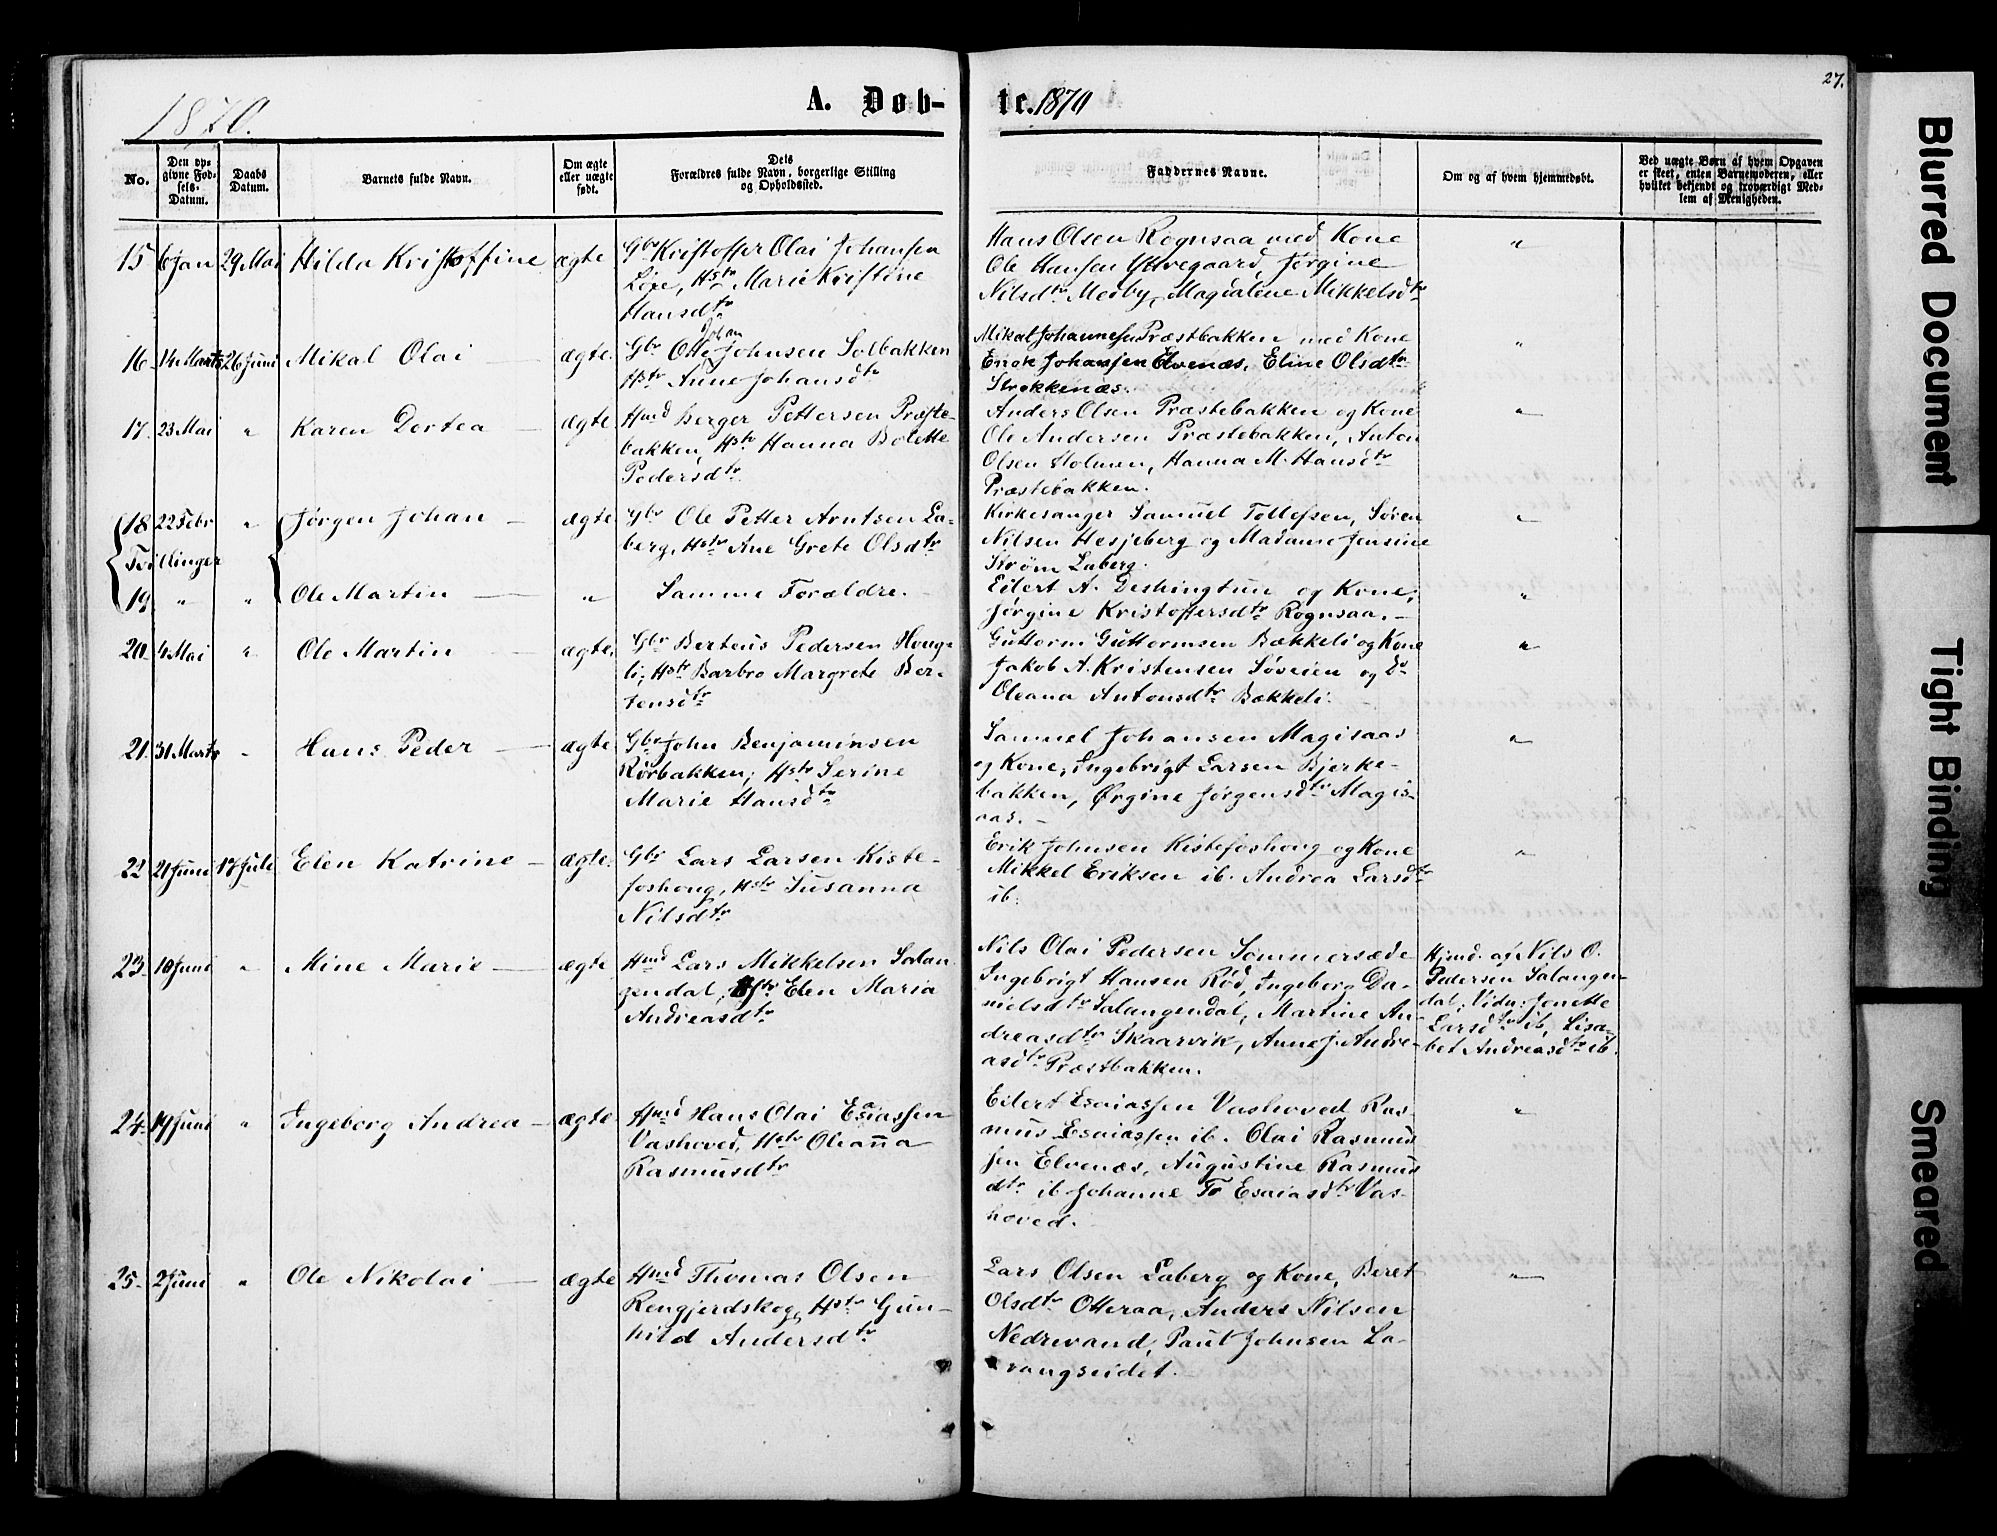 1870.
A. Døb-
te. 1870
27.
No.
Den op-
givne Fød-
sels-
Datum.
Daabs
Datum.
Barnets fulde Navn.
Om ægte
eller uægte
født.
Dels
Forældres fulde Navn, borgerlige Stilling
og Opholdssted.
Faddernes Navne.
Om og af hvem hjemmedøbt.
Ved uægte Børn af hvem Opgaven
er skeet, enten Barnemoderen, eller
hvilket bekjendt og troværdigt Med-
lem af Menigheden.
15 6 Jan 29 Mai Hilda Kristoffine ægte
Gbr Kristoffer Olai Johansen
Hstr Marie Kristine
Hansdtr
Hans Olsen Rognsaa med Kone
Ole Hansen Yttregaard, Jørgine
Nilsdtr Medby, Magdalene Mikkelsdtr
"
16 14 Marts 26 Juni Mikal Olai — ægte.
Johan
Gbr Otto Johnsen Solbakken
Hstr Anne Johansdtr
Mikal Johannesen Præstbakken med Kone
Enok Johansen Elvenæs, Eline Olsdtr
Strokkenæs.
"
17. 23 Mai " Karen Dortea — ægte
Hmd Berger Pettersen Præste-
bakken, Hstr Hanna Bolette
Pedersdtr
Anders Olsen Præstebakken og Kone
Ole Andersen Præstebakken, Anton
Olsen Holmen, Hanna M. Hansdtr
Præstebakken.
"
18 22 Febr " Jørgen Johan — ægte
Tvillinger
Gbr Ole Petter Arntsen La-
berg, Hstr Ane Grete Olsdtr
Kirkesanger Samuel Tollefsen, Søren
Nilsen Hesjeberg og Madame Jensine
Strøm Laberg.
"
19. " " Ole Martin — "
Samme Forældre.
Eilert A. Deshingtun og Kone,
Jørgine Kristoffersdtr Rognsaa. —
"
20. 4 Mai " Ole Martin — ægte.
Gbr Berteus Pedersen Houg-
li, Hstr Barbro Margrete Ber-
tensdtr
Guttorm Guttormsen Bækkeli og Kone
Jakob A. Kristensen Søveien og do
Oleana Antonsdtr Bækkeli.
"
21. 31 Marts " Hans Peder — ægte
Gbr John Benjaminsen
Rørbakken, Hstr Serine
Marie Hansdtr
Samuel Johansen Magisaas
og Kone, Ingebrigt Larsen Bjerke-
bakken, Ørgine Jørgensdtr Magis-
aas. —
"
22 21 Juni 17 Juli Elen Katrine — ægte.
Gbr Lars Larsen Kiste-
foshoug, Hstr Susanna
Nilsdtr
Erik Johnsen Kistefoshoug og Kone
Mikkel Eriksen ib. Andrea Larsdtr
ib.
"
23. 10 Juni " Mine Marie — ægte
Hmd Lars Mikkelsen Salan-
gendal, Hstr Elen Maria
Andreasdtr
Nils Olai Pedersen Sommersæde
Ingebrigt Hansen Rød, Ingeborg Da-
nielsdtr Salangendal, Martine An-
dreasdtr Skaarvik, Anne J. Andre-
asdtr Præstbakken.
Hjmd. af Nils O.
Pedersen Salangen-
dal. Vidn: Jonette
Larsdtr ib, Lisa-
bet Andreasdtr ib.
24. 19 Juni " Ingeborg Andrea — ægte
Hmd Hans Olai Esaiassen
Vashoved, Hstr Oleanna
Rasmusdtr
Eilert Esaiassen Vashoved Ras-
mus Esaiassen ib. Olai Rasmus
sen Elvenæs, Augustine Rasmus
dtr ib Johanne T. Esaiasdtr Vas-
hoved.
"
25. 2 Juni " Ole Nikolai — ægte
Hmd Thomas Olsen
Rengjerdskog, Hstr Gun-
hild Andersdtr
Lars Olsen Laberg og Kone, Beret
Olsdtr Otteraa, Anders Nilsen
Nedrevand, Paul Johnsen La-
vangseidet.
"
Blurred Document
Tight Binding
Smeared